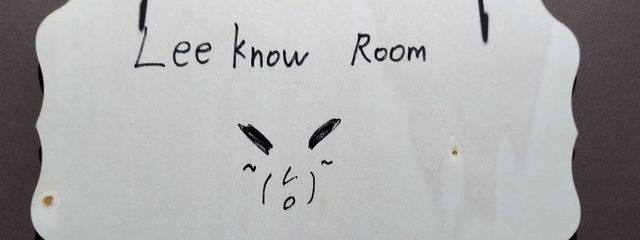 Lee know Room